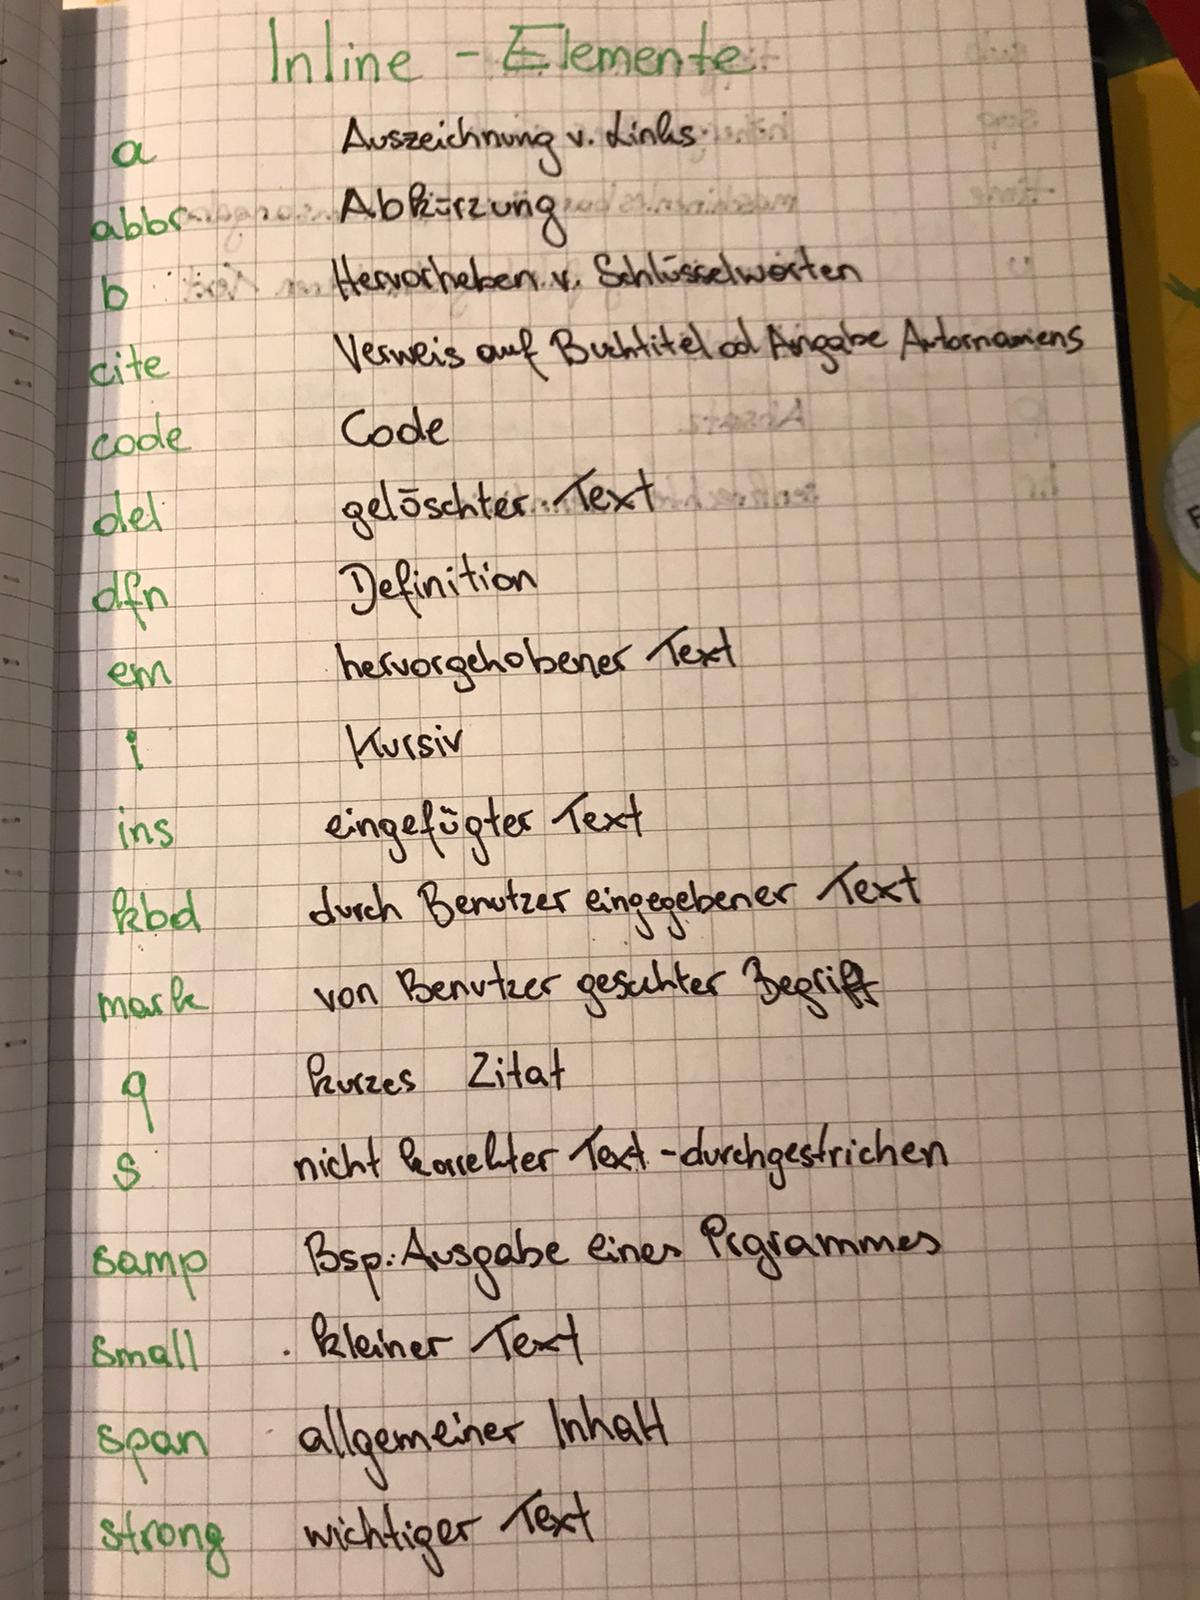 Inline - Elemente
a Auszeichnung v. Links
abbr Abkürzung
b Hervorheben v. Schlüsselworten
cite Verweis auf Buchtitel od Angabe Autornamens
code Code
del gelöschter Text
dfn Definition
em hervorgehobener Text
i Kursiv
ins eingefügter Text
kbd durch Benutzer eingegebener Text
mark von Benutzer gesuchter Begriff
q kurzes Zitat
s nicht korrekter Text - durchgestrichen
samp Bsp. Ausgabe eines Prgrammes
small kleiner Text
span allgemeiner Inhalt
strong wichtiger Text